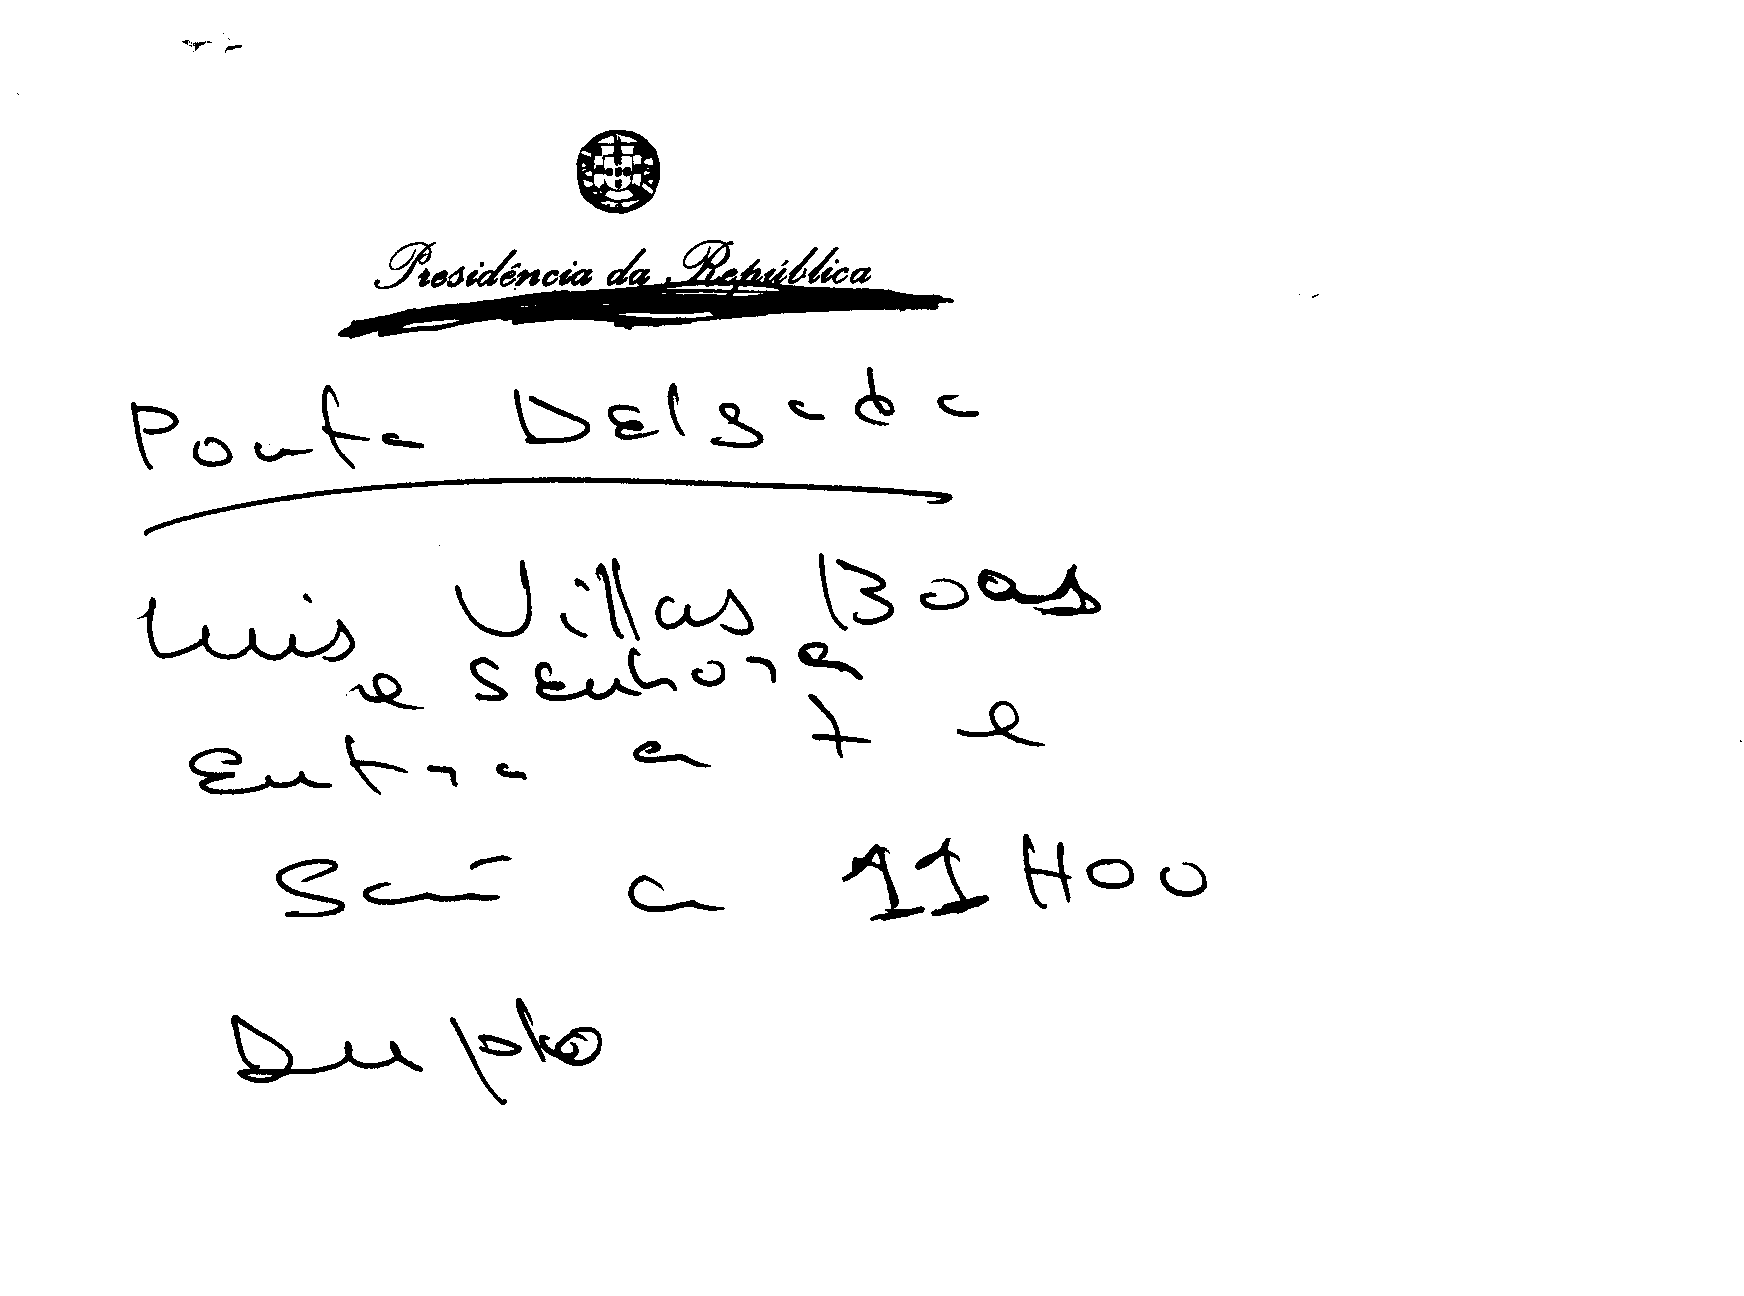 Presidência da República
Ponta Delgada
Luis Villas Boas
e Senhora
Entra a 7 e
Sai a 11H00
Duplo